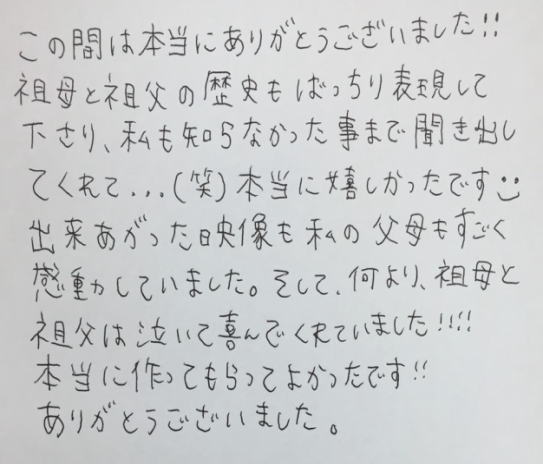 この間は本当にありがとうございました!!
祖母と祖父の歴史もばっちり表現して
下さり、私も知らなかった事まで聞き出し
てくれて...(笑)本当に嬉しかったです☺
出来あがった映像も私の父母もすごく
感動していました。そして、何より、祖母と
祖父は泣いて喜んでくれていました!!!!
本当に作ってもらってよかったです!!
ありがとうございました。